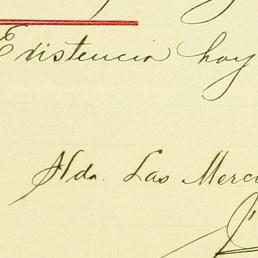 Existencia hoy
Hda. Las Merc